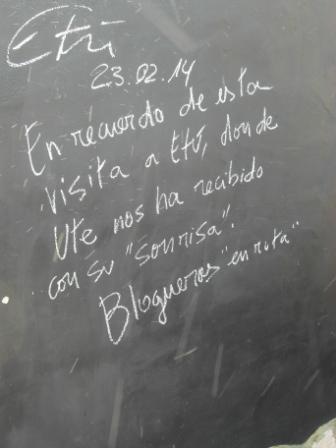 Etti
23.02.14
En recuerdo de esta
visita a Etti, donde
Ute nos ha recibido
con su "sonrisa".
Blogueros "en ruta"